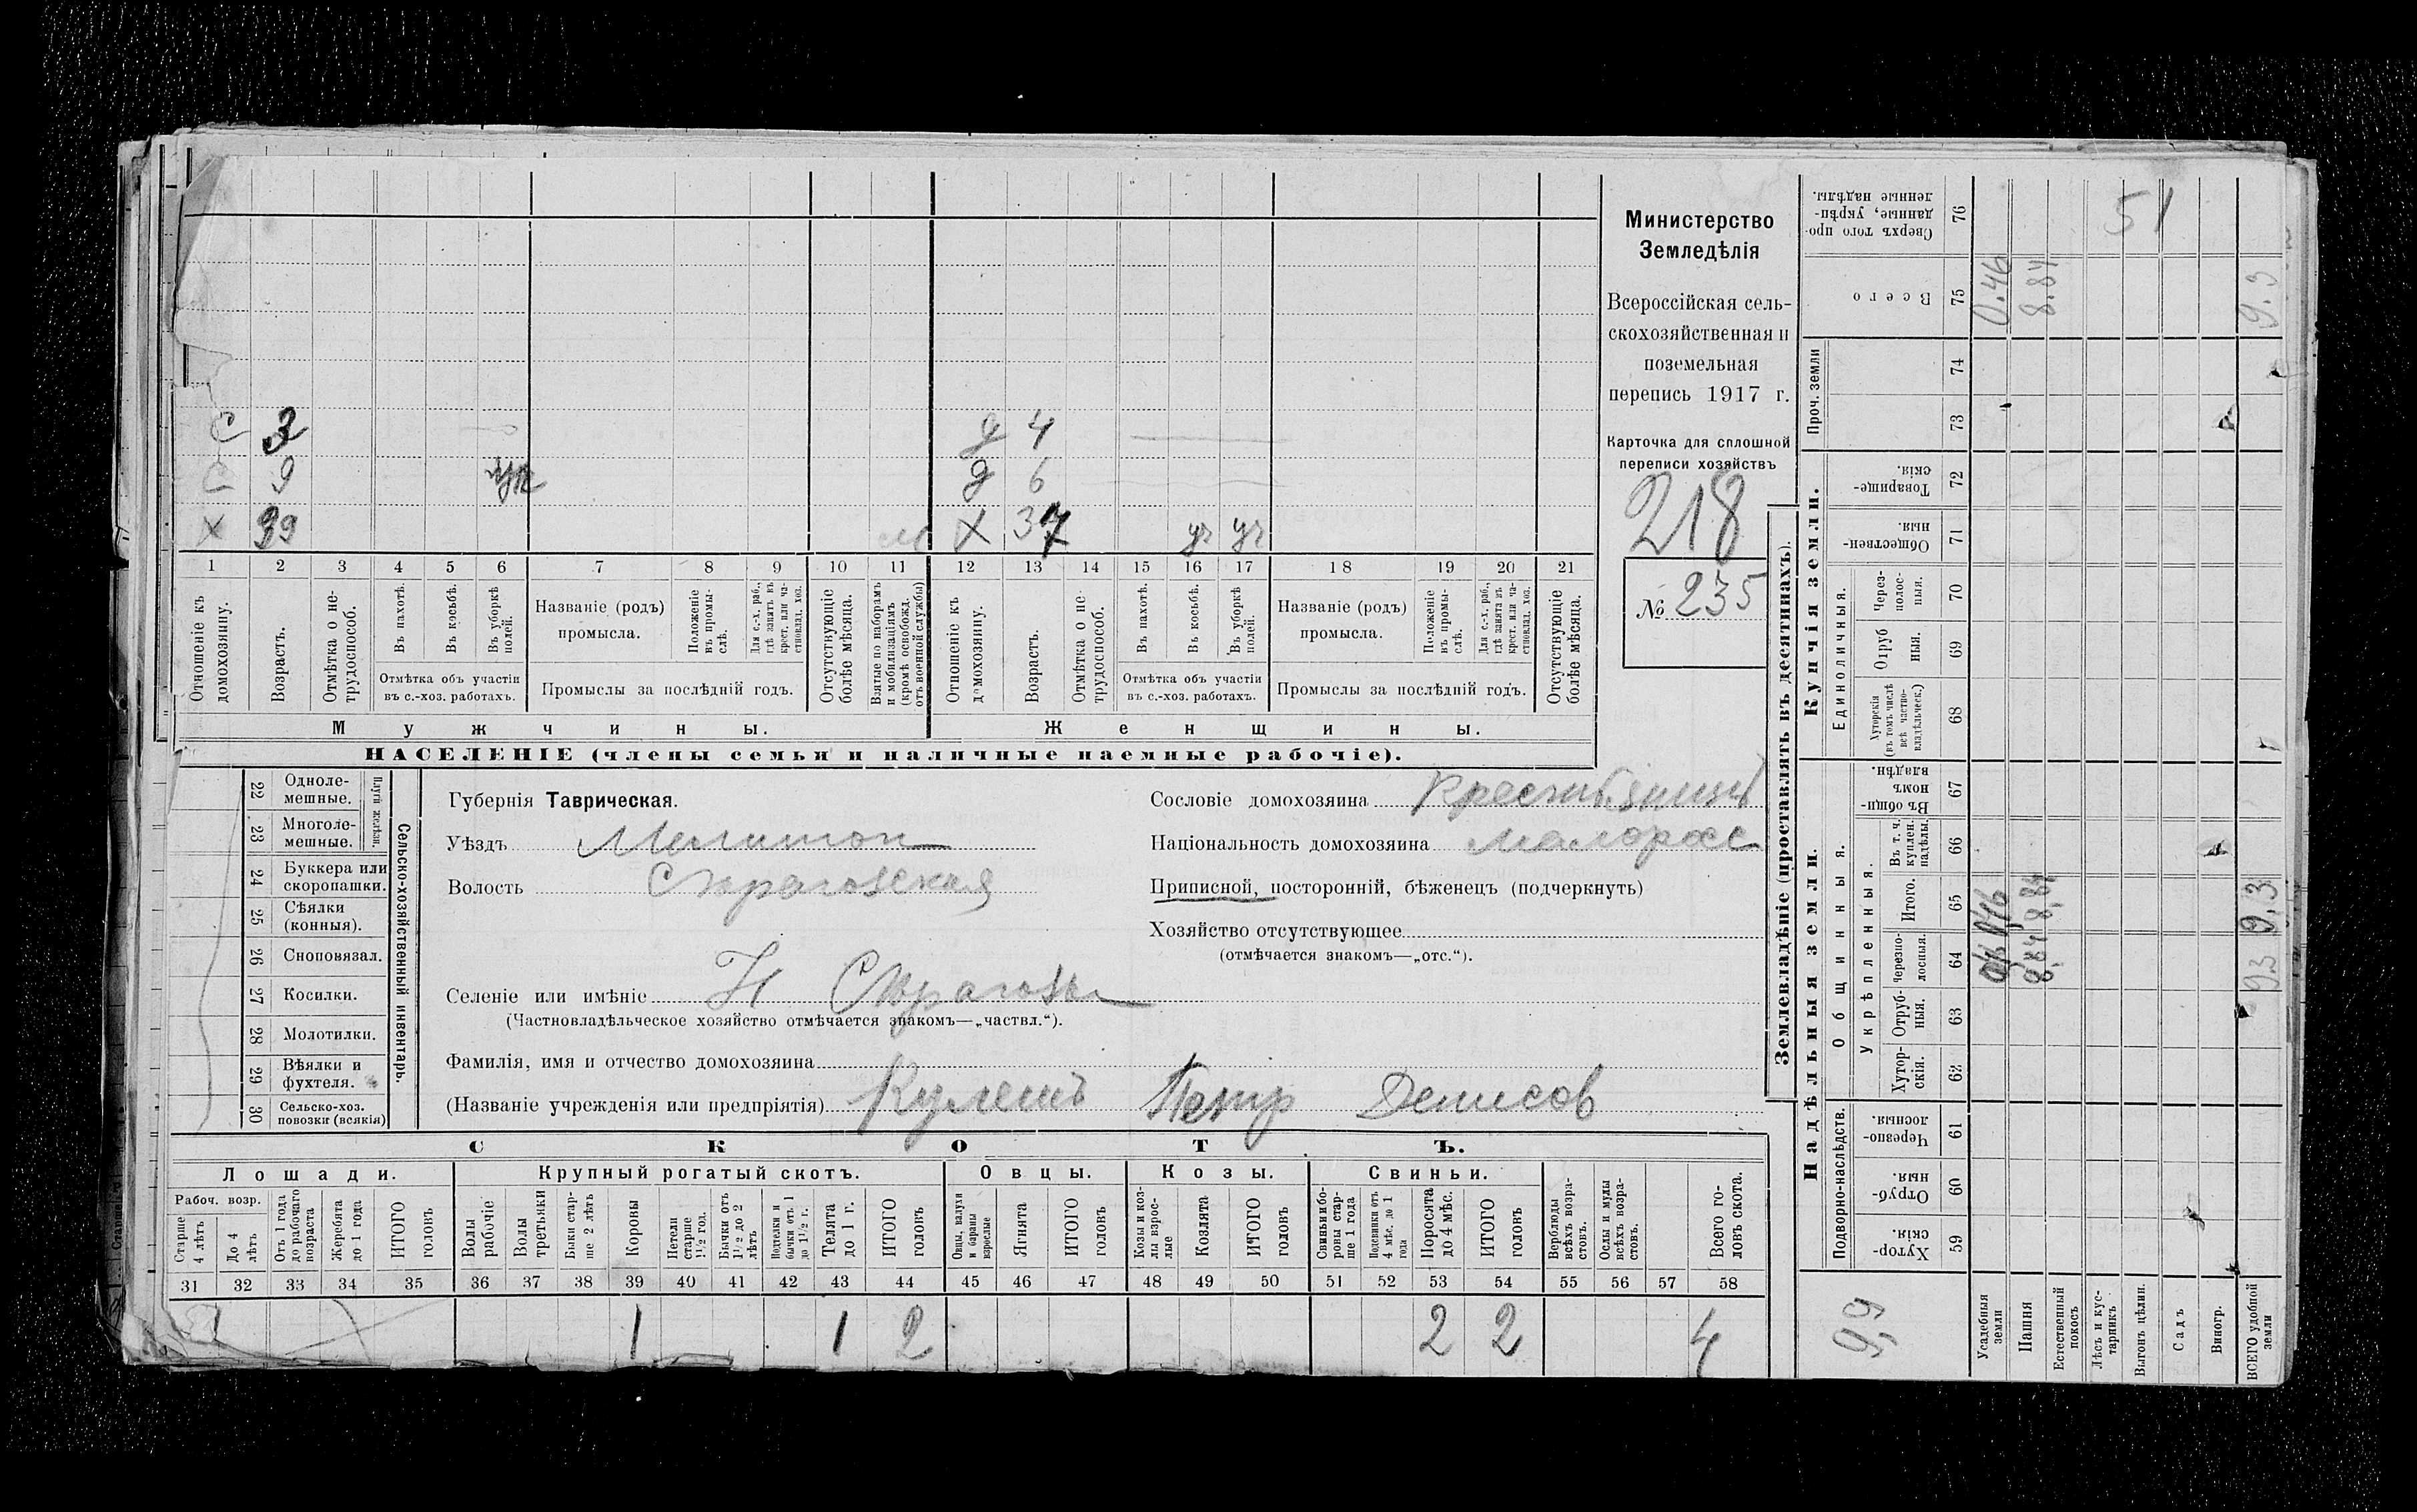 С 3 д 4
С 9 ук д 6
Х 39 м Х 37 уг уг
1 2 3 4 5 6 7 8 9 10 11 12 13 14 15 16 17 18 19 20 21
Отношеніе къ домохозяину.
Возрастъ.
Отмѣтка о нетрудоспособ.
Въ пахотѣ.
Въ косьбѣ.
Въ уборкѣ полей.
Отмѣтка объ участіи
въ с.-хоз. работахъ.
Названіе (родъ)
промысла.
Положеніе въ промыслѣ.
Для с.-х. раб., гдѣ занятъ въ крест. или частновлад. хоз.
Промыслы за послѣдній годъ.
Отсутствующіе болѣе мѣсяца.
Взятые по наборамъ и мобилизаціямъ (кромѣ освобожд. отъ военной службы)
Отношеніе къ домохозяину.
Возрастъ.
Отмѣтка о нетрудоспособ.
Въ пахотѣ.
Въ косьбѣ.
Въ уборкѣ полей.
Отмѣтка объ участіи
въ с.-хоз. работахъ.
Названіе (родъ)
промысла.
Положеніе въ промыслѣ.
Для с.-х. раб., гдѣ занята въ крест. или частновлад. хоз.
Промыслы за послѣдній годъ.
Отсутствующіе болѣе мѣсяца.
Мужчины. Женщины.
НАСЕЛЕНІЕ (члены семьи и наличные наемные рабочіе).
Министерство
Земледѣлія
Всероссійская сель-
скохозяйственная и
поземельная
перепись 1917 г.
Карточка для сплошной
переписи хозяйствъ
218
№ 235
Сельско-хозяйственный инвентарь.
Плуги желѣзн.
22 Одноле-
мешные.
23 Многоле-
мешные.
24 Буккера или
скоропашки.
25 Сѣялки
(конныя).
26 Сноповязал.
27 Косилки.
28 Молотилки.
29 Вѣялки и
фухтеля.
30 Сельско-хоз.
повозки (всякія)
Губернія Таврическая.
Уѣздъ Мелитоп
Волость Строгозская
Селеніе или имѣніе Н Строгозы
(Частновладѣльческое хозяйство отмѣчается знакомъ—„частвл.“).
Фамилія, имя и отчество домохозяина
(Названіе учрежденія или предпріятія) Кулешъ Петр Денисов
Сословіе домохозяина
Національность домохозяина Малоросс
Приписной, посторонній, бѣженецъ (подчеркнуть)
Хозяйство отсутствующее
(отмѣчается знакомъ—„отс.“).
СКОТЪ.
Лошади. Крупный рогатый скотъ. Овцы. Козы. Свиньи.
Рабоч. возр.
Старше 4 лѣтъ
До 4 лѣтъ
Отъ 1 года до рабочаго возраста
Жеребята до 1 года
ИТОГО головъ
Волы рабочіе
Волы третьяки
Быки старше 2 лѣтъ
Коровы
Петели старше 1½ год.
Бычки отъ 1½ до 2 лѣтъ
Подтелки и бычки отъ 1 до 1½ г.
Телята до 1 г.
ИТОГО головъ
Овцы, валухи и бараны взрослые
Ягнята
ИТОГО головъ
Козы и козлы взрослые
Козлята
ИТОГО головъ
Свиньи и боровы старше 1 года
Подсвинки отъ 4 мѣс. до 1 года
Поросята до 4 мѣс.
ИТОГО головъ
Верблюды всѣхъ возрастовъ.
Ослы и мулы всѣхъ возрастовъ.
Всего головъ скота.
31 32 33 34 35 36 37 38 39 40 41 42 43 44 45 46 47 48 49 50 51 52 53 54 55 56 57 58
1 1 2 2 2 4
Землевладѣніе (проставлять въ десятинахъ).
Надѣльныя земли. Купчія земли.
Подворно-наслѣдств.
Общинныя.
Укрѣпленныя.
Единоличныя.
Проч. земли
59 Хутор-
скія.
60 Отруб-
ныя.
61 Черезпо-
лосныя.
62 Хутор-
скія.
63 Отруб-
ныя.
64 Черезпо-
лосныя.
65 Итого.
66 Въ т. ч. куплен. надѣлы.
67 Въ общинномъ владѣн.
68 Хуторскія (въ томъ числѣ всѣ частновладѣльческ.)
69 Отруб
ныя.
70 Черезполосныя.
71 Обществен-
ныя.
72 Товарище-
скія.
73
74
75 Всего
76 Сверхъ того проданные, укрѣпленные надѣлы.
51
9,9
Усадебныя земли 0,46 0.46
Пашня 8,84 8,84 8.84
Естественный покосъ
Лѣсъ и кустарникъ
Выгонъ цѣлин.
Садъ
Виногр.
ВСЕГО удобной земли 9,3 9,3 9.3